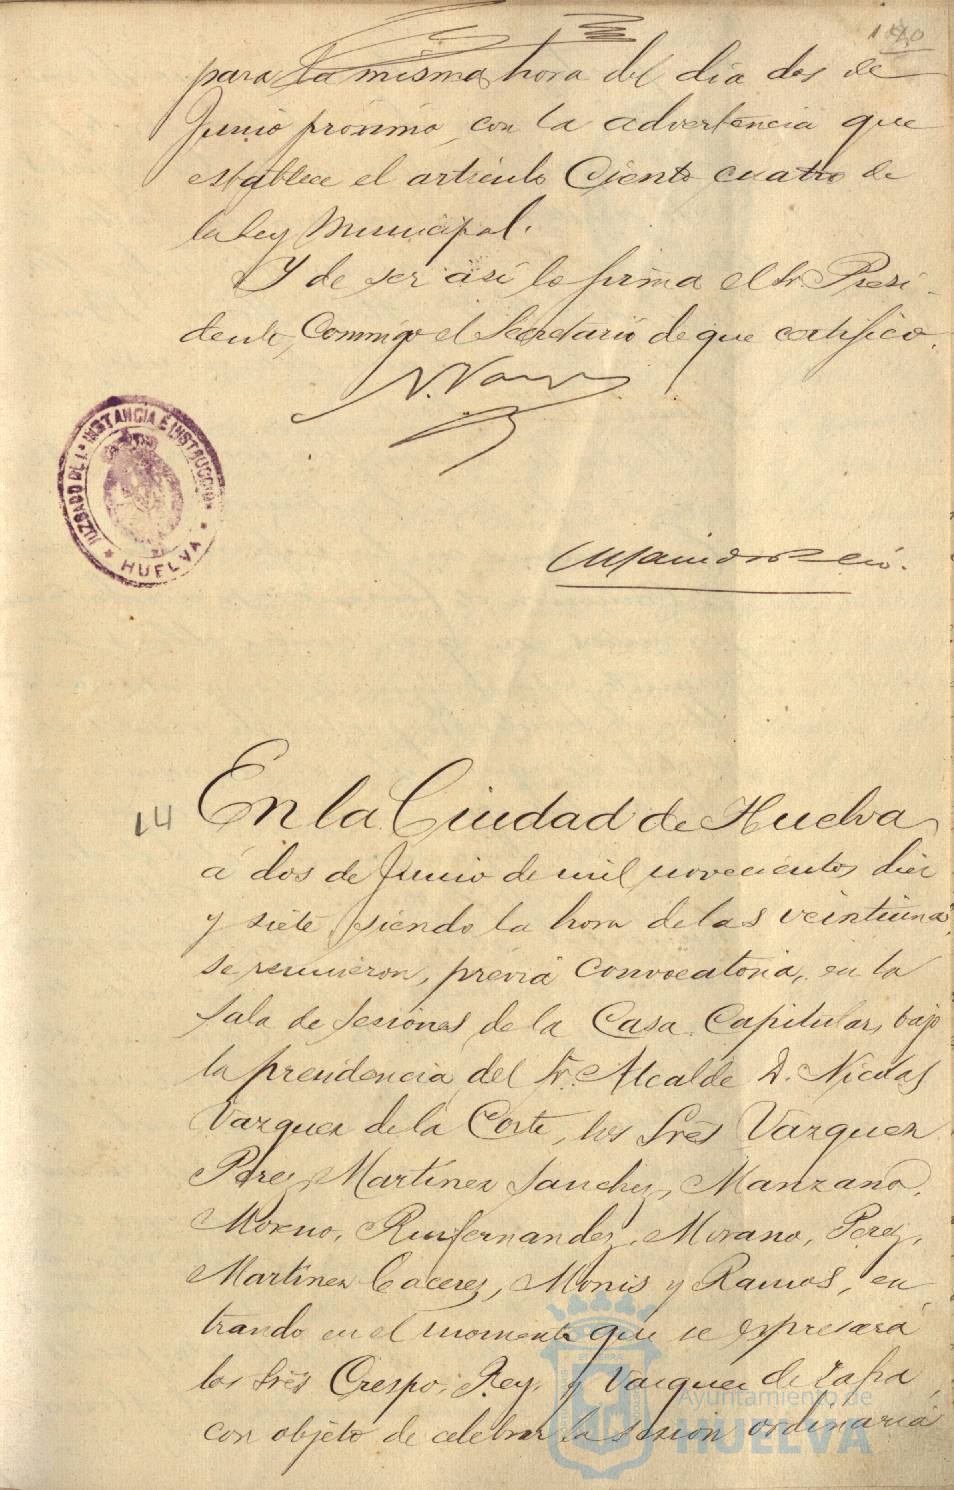 140
para la misma hora del día dos de
Junio próximo, con la advertencia que
establece el artículo Ciento cuatro de
la Ley Municipal.
Y de ser así lo firma el Sr. Presi-
dente, Conmigo el Secretario de que certifico.
N. Vazquez
JUZGADO DE 1ª INSTANCIA É INSTRUCCION
* HUELVA *
14
En la Ciudad de Huelva
á dos de Junio de mil novecientos diez
y siete siendo la hora de las veintiuna
se reunieron, previa convocatoria, en la
Sala de Sesiones de la Casa Capitular, bajo
la presidencia del Sr. Alcalde D. Nicolas
Vazquez de la Corte, los Sres Vazquez
Perez, Martinez Sanchez, Manzano,
Moreno, Ruifernandez, Morano, Perez,
Martinez Caceres, Monis y Ramos, en
trando en el momento que se espresará
los Sres Crespo, Rey, y Vazquez de Zafra,
con objeto de celebrar la sesion ordinaria
Ayuntamiento de
HUELVA